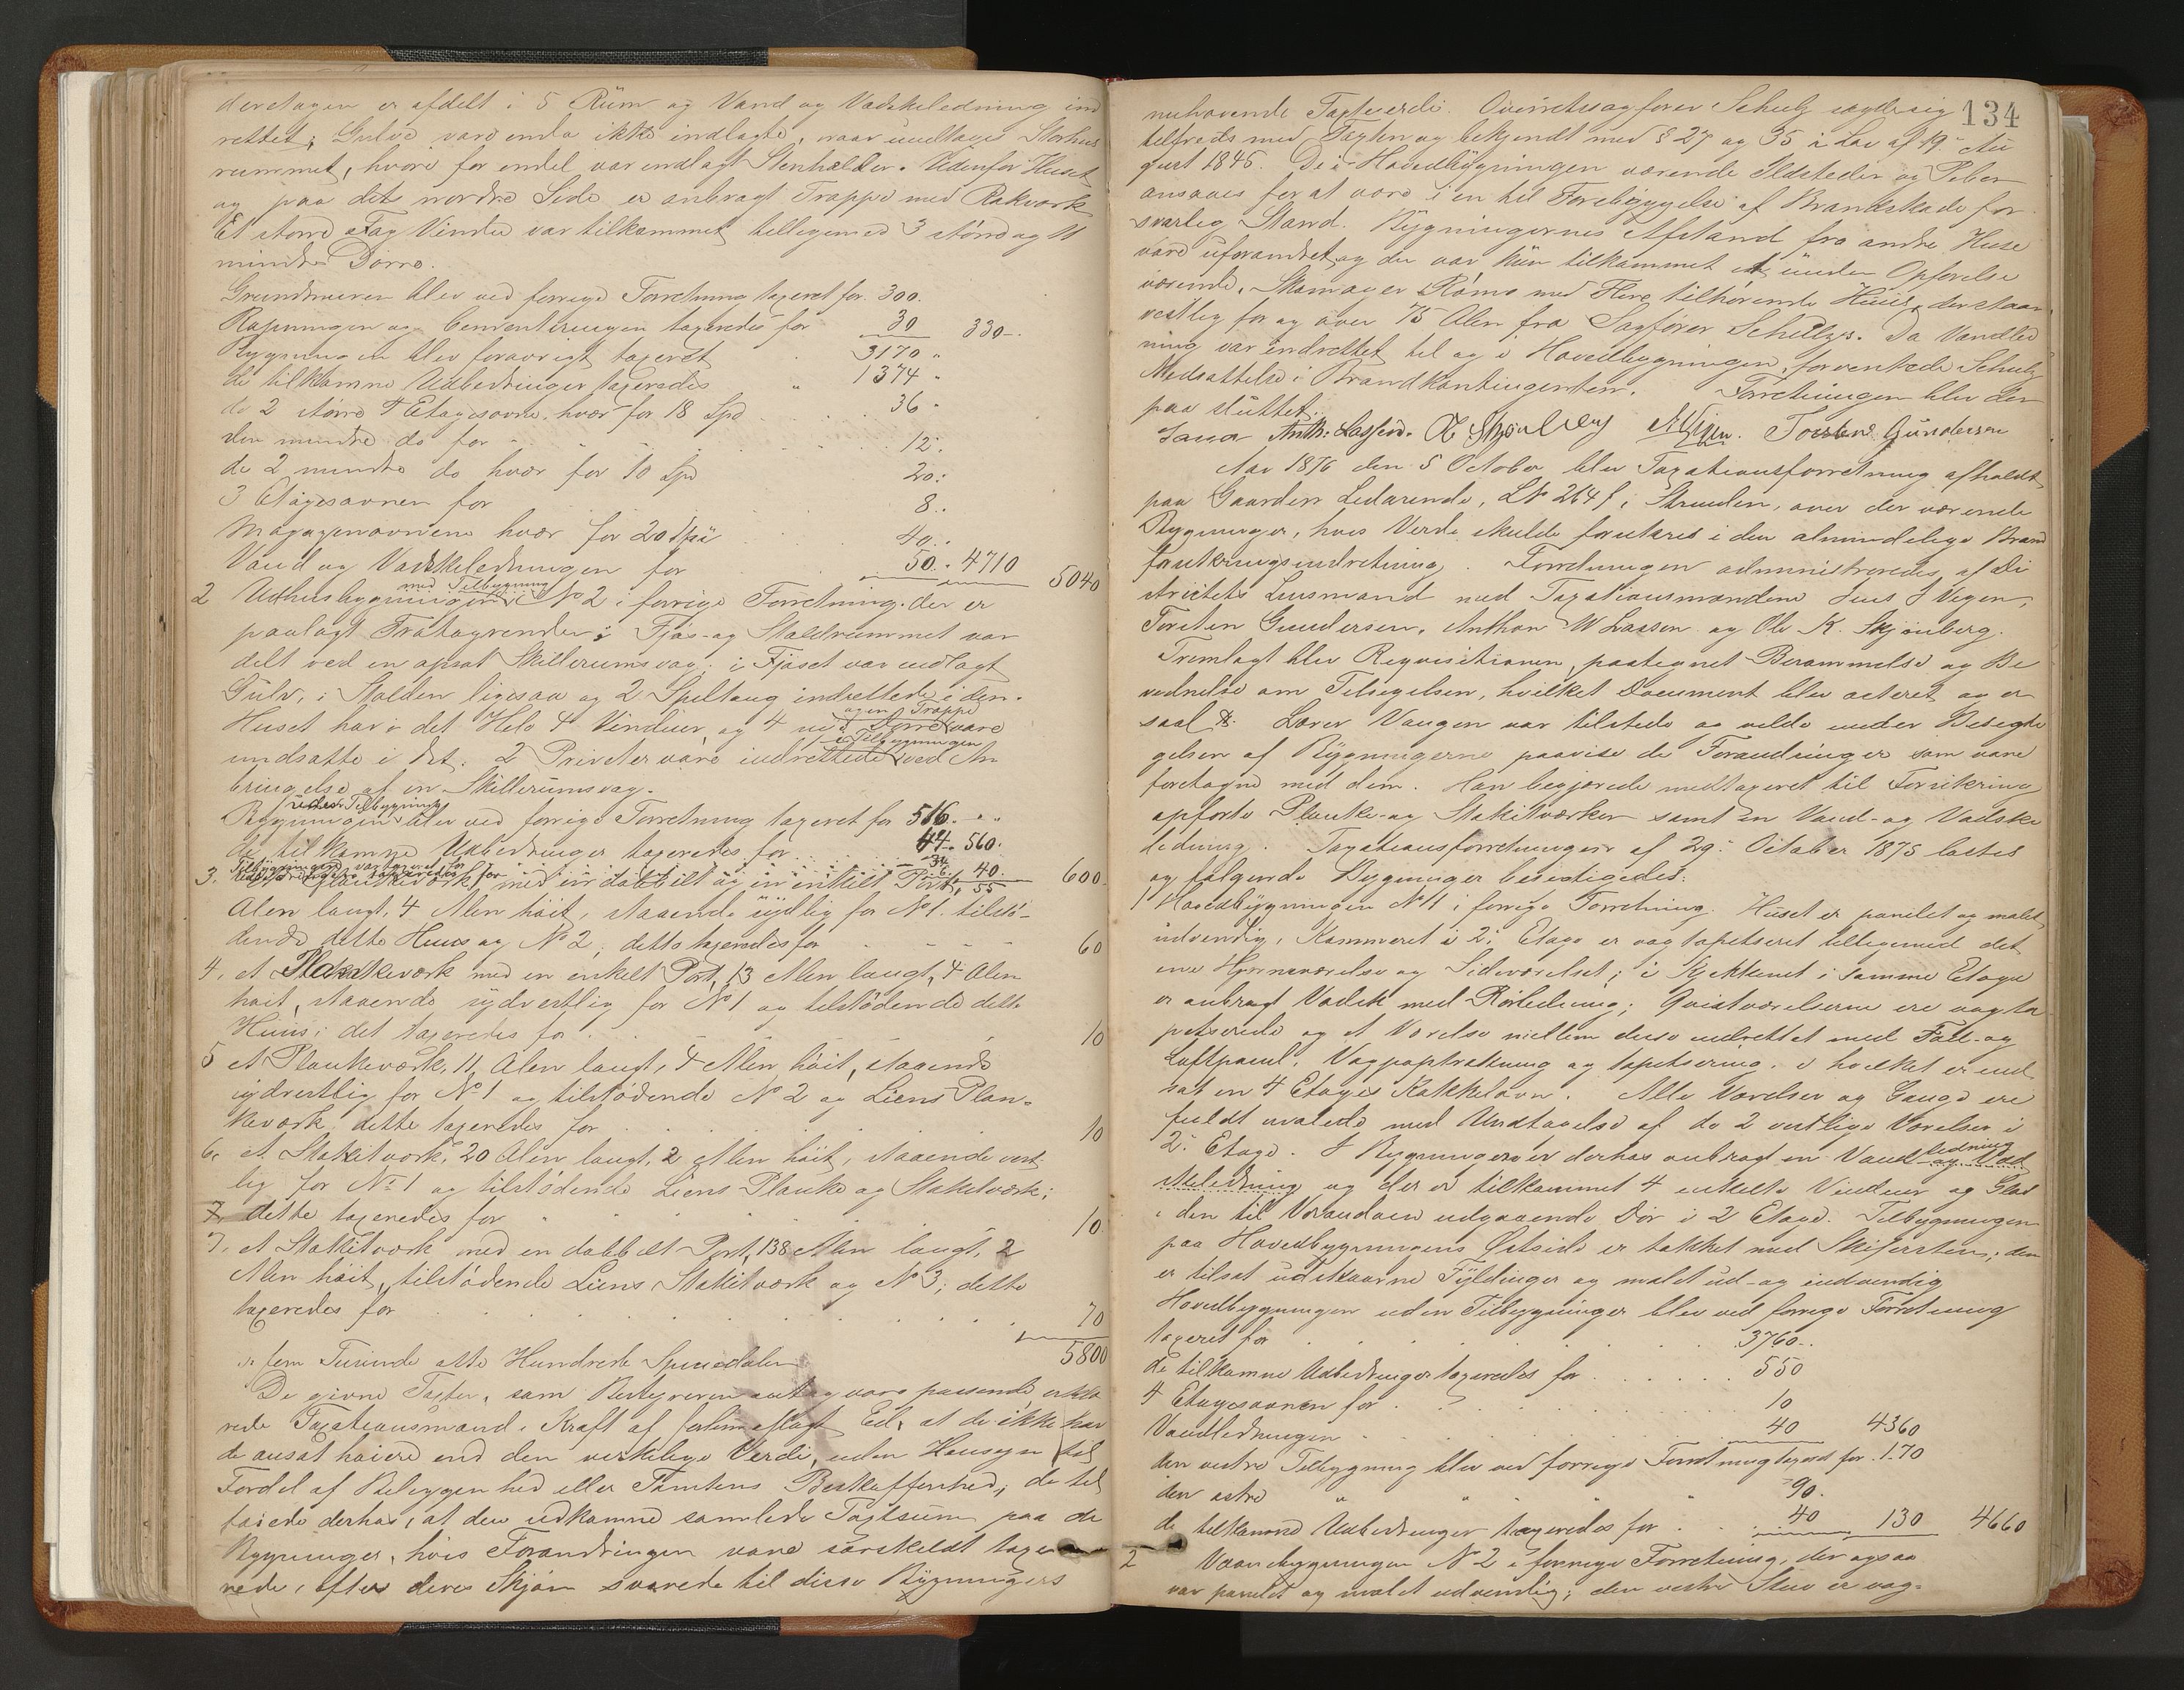 deretagen er afdelt i 5 Rüm og Vand og Vadskeledning ind
rettet; Gulve vare enda ikke indlagte, naar undtages Storhus
rummet, hvori for endel var indlagt Stenhelder. Udenfor Huset
og paa dets nordre Side er anbragt Trappe med Rækværk
Et større Fag Vinduer var tilkommet tilligemed 3 større og 11
mindre Dørre.
Grundmuren blev ved forrige Forretning taxeret for 300.
Rapningen og Cementeringen taxeredes for 30 330-.
Bygningen blev forøvrigt taxeret 3170 "
de tilkomne Udbedringer taxeredes " 1374 "
de 2 større 4 Etagesovne hvær for 18 Spd 36 "
den mindre do for 12.
de 2 mindre do hvær for 10 Spd 20.
3 Etagesovnen for 8..
Magazinovnene hvær for 20 Spd 40..
Vand og Vadskeledningen for 50.. 4710 5040
med Tilbygning
2 Udhusbygningen No 2 i forrige Forretning. der er
paalagt Trætagrender; Fjøs- og Staldrummet var
delt ved en opsat Skillerumsvæg; i Fjøset var indlagt
Gulv, i Stalden ligesaa og 2 Spiltaug indrettede i den.
ogen Trappe
Huset har i det Hele 4 Vinduer og 4 nye Dørre vare
i Tilbygningen
indsatte i det. 2 Priveter vare indrettede ved An
bringelse af en Skillerumsvæg.
uden Tilbygning
Bygningen blev ved forrige Forretning taxeret for 516. " "
de tilkomne Udbedringer taxeredes for 44. 560.
Tilbygningen var taxeret for 34
Udbedringerne taxeredes for 6. 40. 600.
3. et Plankeværk med en dobbelt og en enkelt Port, 55
Alen langt, 4 Alen høit, staaende sydlig for No 1. tilstø-
dende dette Huus og No 2; dette taxeredes for 60
4, et Plankeværk med en enkelt Port, 13 Alen langt, 4 Alen
høit, staaende sydvestlig for No 1 og tilstødende dette
Huus; det taxeredes for 10
5 et Plankeværk, 11 Alen langt, 4 Alen høit, staaende
sydvestlig for No 1 og tilstødende No 2 og Liens Plan-
keværk dette taxeredes for 10
6. et Stakitværk, 20 Alen langt, 2 Alen høit, staaende vest
lig for No 1 og tilstødende Liens Planke og Stakitværk;
7. dette taxeredes for 10
7. et Stakitværk med en dobbelt Port, 138 Alen langt, 2
Alen høit, tilstødende Liens Stakitværk og No 3; dette
taxeredes for 70
5800
er fem Tusinde otte Hundrede Speciedaler
De givne Taxter, som Bestyreren antog vare passende, erklæ
rede Taxationsmænd. i Kraft af forhen aflagt Eed, at de ikke hav
de ansat høiere end den virkelige Verdi, uden Hensyn til
Fordel af Beliggenhed eller Tomtens Beskaffenhed; de til
føiede derhos, at den udkomne samlede Taxtsum paa de
Bygninger, hvis Forandringen vare særskildt taxe
rede, efter deres Skjøn svarede til disse Bygningers
134
nuhavende Taxtverdi. Overretssagfører Schulz erklærede sig
tilfreds med Taxten og bekjendt med § 27 og 35 i Lov af 19. Au
gust 1845. De i Hovedbygningen værende Ildsteder og Piber
ansaaes for at være i en til Forebyggelse af Brandskade for
svarlig Stand. Bygningernes Afstand fra andre Huse
vare uforandret, og der var kun tilkommet et, under Opførelse
værende, Skomager Røms med Flere tilhørende Huus, der staar
vestlig for og over 75 Alen fra Sagfører Schultz's. Da Vandled
ning var indrettet til og i Hovedbygningen, forventede Schulz
Nedsættelse i Brandkontingenten. Forretningen blev der
paa sluttet.
Anth: Lassen. O Skjønberg J Vigen. Torsten Gundersen
Aar 1876 den 5 October blev Taxationsforretning afholdt
paa Gaarden Ledarende, L No 264 f, i Stranden, over der værende
Bygninger, hvis Verdi skulde forsikres i den almindelige Brand
forsikringsindretning. Forretningen administreredes af Di
strictets Lensmand med Taxationsmændene Jens J Vigen,
Torsten Gundersen, Anthon W Lassen og Ole K. Skjønberg.
Fremlagt blev Reqvisitionen, paategnet Berammelse og Be
vidnelse om Tilsigelsen, hvilket Document blev acteret og er
saal. Lærer Vangen var tilstede og vilde under Besigti
gelsen af Bygningerne paavise de Forandringer som vare
foretagne med dem. Han begjærede medtaxeret til Forsikring
opførte Planke- og Stakitværker samt en Vand- og Vadske
ledning. Taxationsforretningen af 29. October 1875 læstes
og følgende Bygninger besigtigedes:
1 Hovedbygningen No 1 i forrige Forretning. Huset er panelet og malet
udvendig, Kammeret i 2. Etage er væg tapetseret tilligemed det
ene Hjørneværelse og Sideværelset; i Kjøkkenet i samme Etage
er anbragt Vadsk med Rørledning; Qvistværelserne ere vægta
petserede og et Værelse mellem disse indrettet med Fod- og
Luftpanel, Vægpaptrækning og tapetsering. i hvilket er ind
sat en 4 Etages Kakkelovn. Alle Værelser og Gange ere
fuldt malede med Undtagelse af de 2 vestlige Værelser i
2. Etage. I Bygningen er derhos anbragt en Vandledning og Vad
skeledning og der er tilkommet 4 enkelte Vinduer og Glas
i den til Verandaen udgaaende Dør i 2 Etage. Tilbygningen
paa Hovedbygningens Østside er takket med Skifersten; den
er tilsat udskaarne Fyldinger og malet ud- og indvendig
Hovedbygningen uden Tilbygninger blev ved forrige Forretning
taxeret for 3760..
de tilkomne Udbedringer taxeredes for 550
4 Etagesovnen for 10
Vandledningen 40 4360
den vestre Tilbygning blev ved forrige Forretning taxeret for 170
den østre " " " " 90.
de tilkomne Udbedringer taxeredes for 40 130 4660
2 Vaanebygningen No 2 i forrige Forretning, der ogsaa
var panelet og malet udvendig; den vestre Stue er væg-